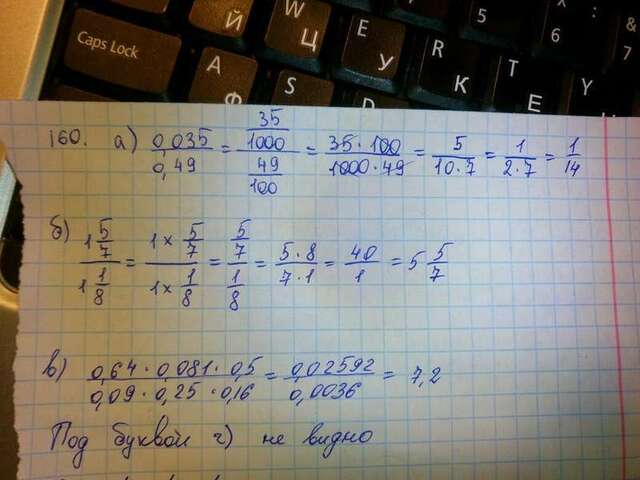 Caps Lock
W Ц
E У
R К
T Е
Y
5
6
7
A Ф
S
Й
160. а) 0,035/0,49 = (35/1000)/(49/100) = 35·100/1000·49 = 5/10·7 = 1/2·7 = 1/14
б) 1 5/7 / 1 1/8 = 1× 5/7 / 1× 1/8 = (5/7)/(1/8) = 5·8/7·1 = 40/1 = 5 5/7
в) 0,64·0,081·0,5/0,09·0,25·0,16 = 0,02592/0,0036 = 7,2
Под буквой г) не видно